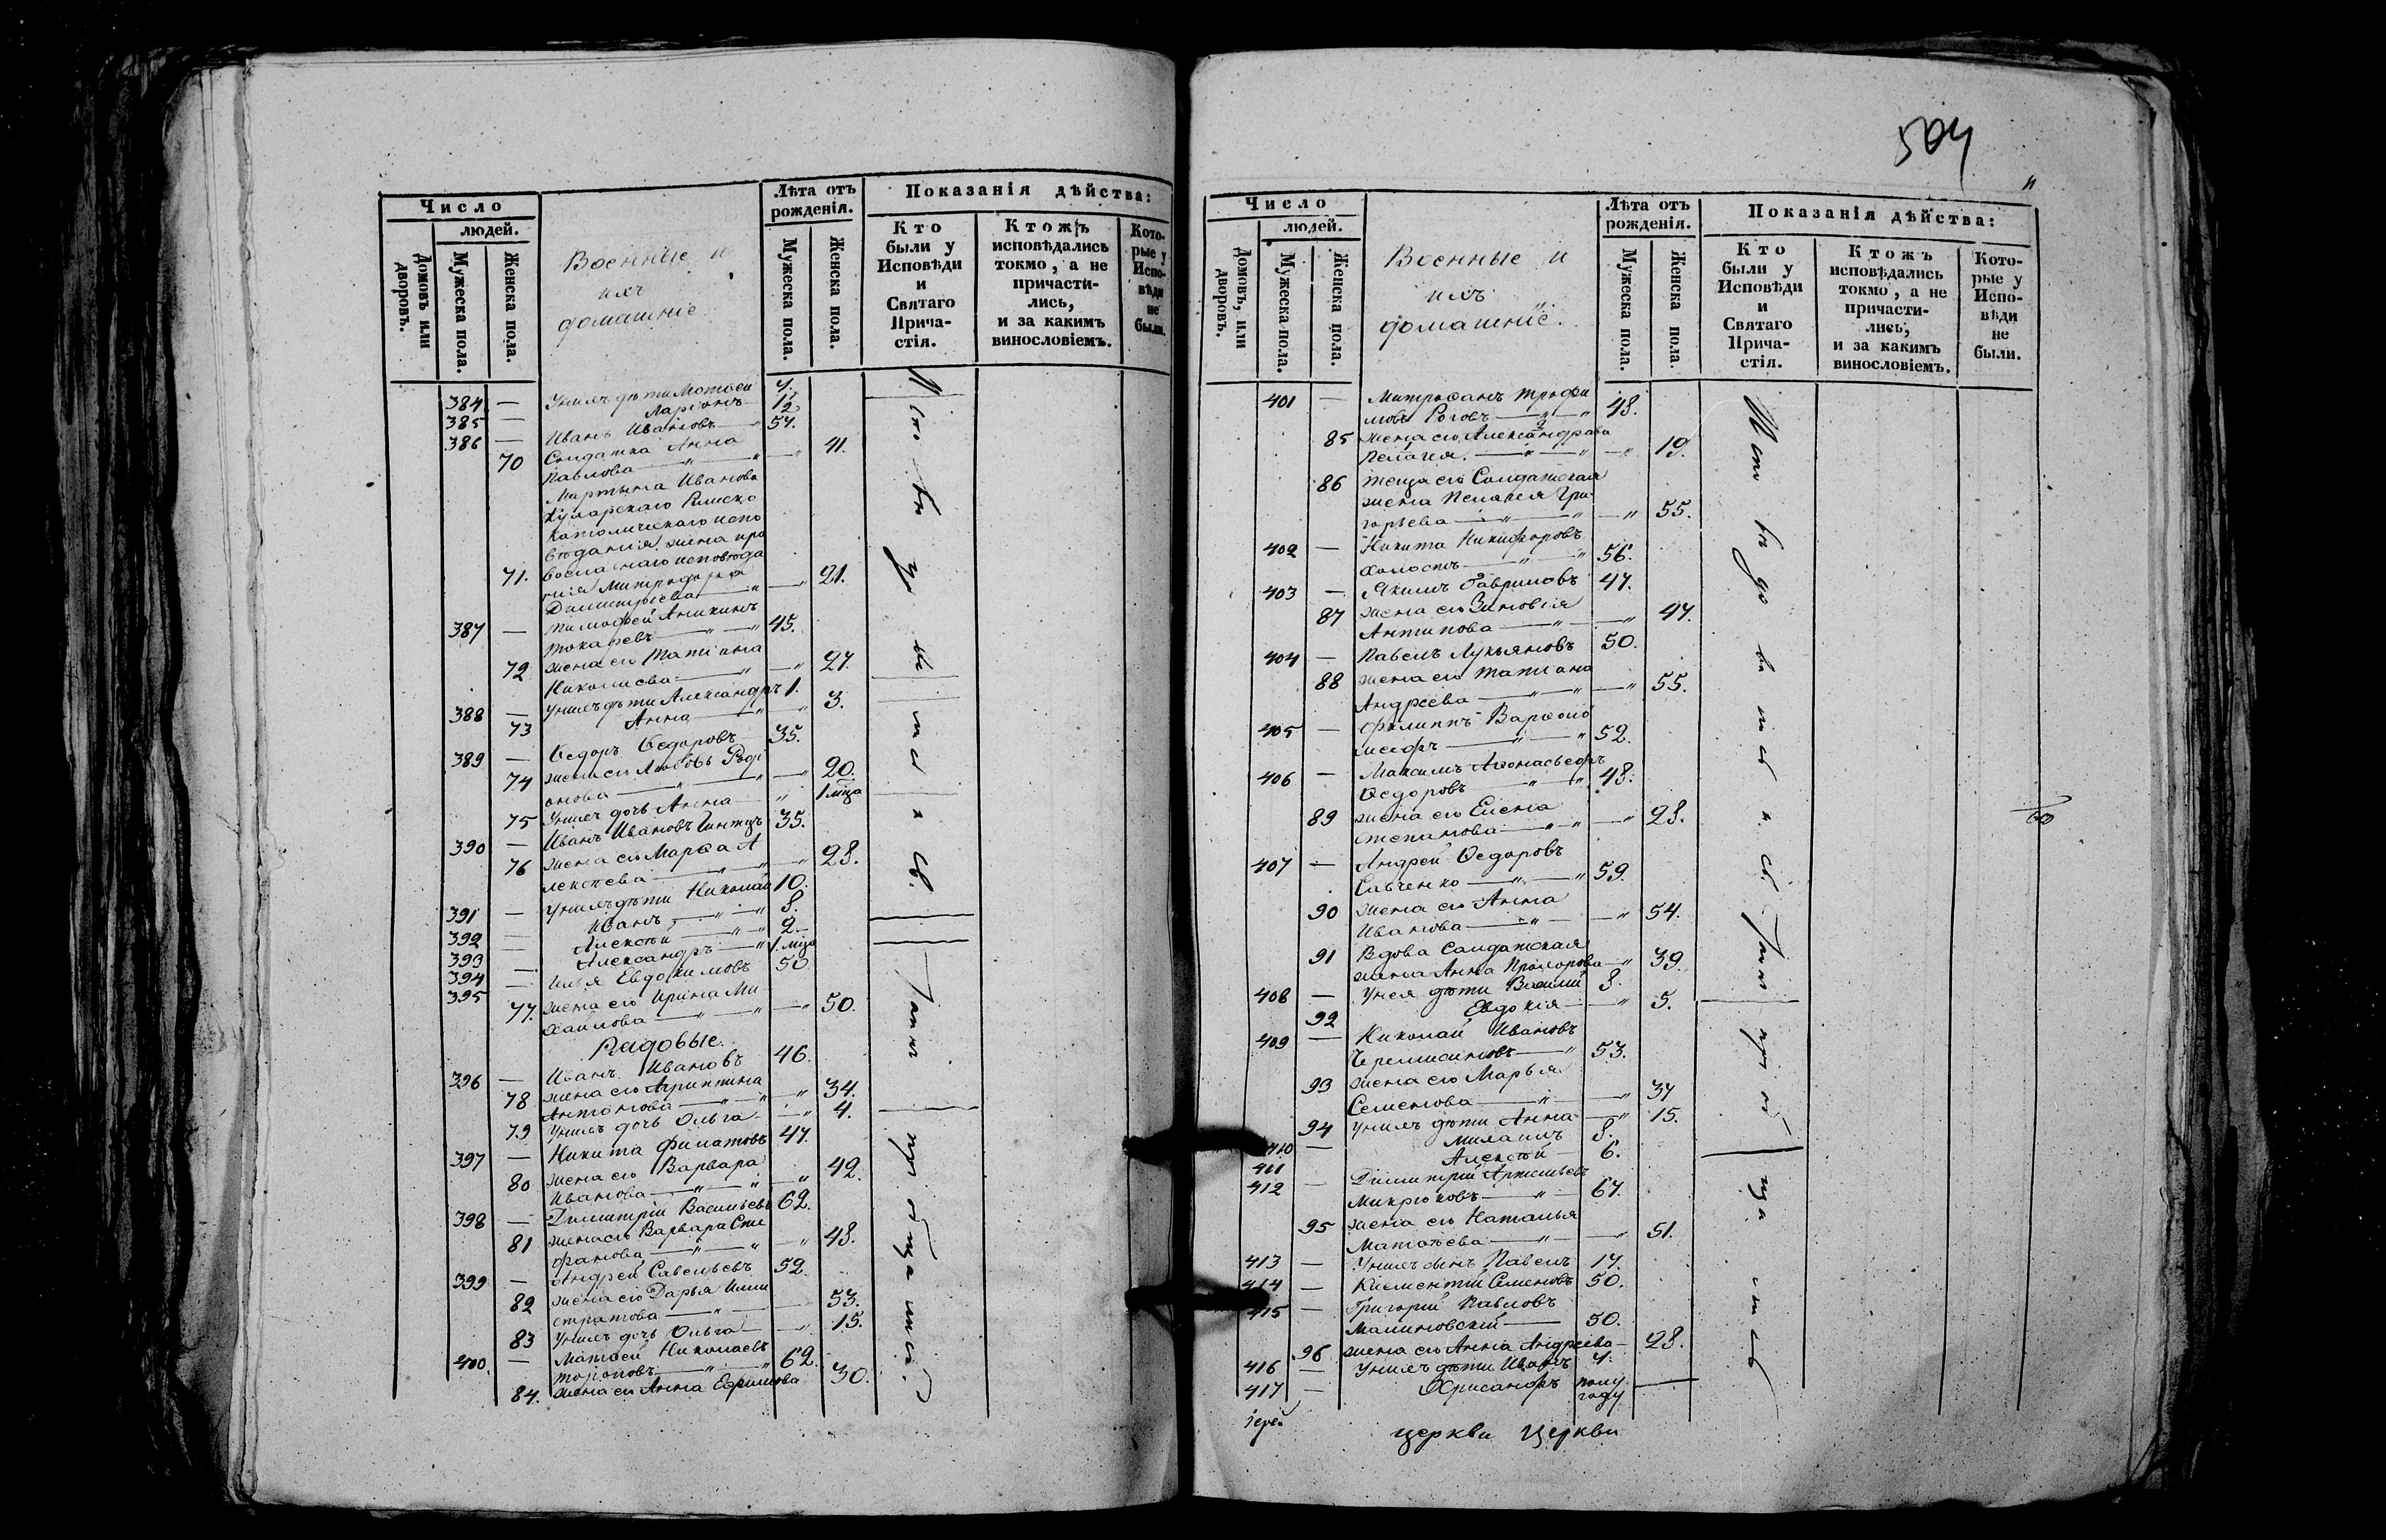 Число
людей.
Домовъ или дворовъ.
Мужеска пола.
Женска пола.
Военные и
ихъ
домашніе
Лѣта отъ
рожденія.
Мужеска пола.
Женска пола.
Показанія дѣйства:
Кто
были у
Исповѣди
и
Святаго
Прича-
стія.
Ктожъ
исповѣдались
токмо, а не
причасти-
лись,
и за какимъ
винословіемъ.
Кото-
рые у
Испо-
вѣди
не
были.
384 — У нихъ дѣти Матѳей 4.
385 — Ларіонъ 1½
386 — Иванъ Ивановъ 54.
70 Солдатка Анна
Павлова 41.
Мартына Иванова
Римско
католическаго испо
вѣданія жена пра
71. вославнаго исповѣда
нія Митродора 21.
Димитріева
387 — Тимофей Аникинъ
Токаревъ 45.
72 жена его Татіана
Николаева 27.
388 — У нихъ дѣти Александръ 1.
73 Анна 3.
389 — Ѳедоръ Ѳедоровъ 35.
74 жена его Любовь Роді
онова 20.
75 У нихъ дочь Анна 1 мѣца
390 — Иванъ Ивановъ 35.
76 жена его Марѳа А
лексѣева 28.
391 — У нихъ дѣти Николай 10.
392 — Иванъ 8.
393 — Алексѣй 2.
394 — Александръ 1 мѣца
395 Илья Евдокимовъ 50
77. жена его Ирина Ми
хайлова 50.
Рядовые.
396 — Иванъ Ивановъ 46.
78 жена его Агрипина
Антонова 34.
79 У нихъ дочь Ольга 4.
397 — Никита Филатовъ 47.
80 жена его Варвара
Иванова 42.
398 — Димитрій Васильевъ 62.
81 жена его Варвара Сте
фанова 48.
399 — Андрей Савельевъ 52.
82 жена его Дарья Кали
стратова 53.
83 У нихъ дочь Ольга 15.
400. — Матѳей Николаевъ
Тороповъ 62.
84. жена его Анна Ефимова 30.
504
Число
людей.
Домовъ, или дворовъ.
Мужеска пола.
Женска пола.
Военные и
ихъ
домашніе.
Лѣта отъ
рожденія.
Мужеска пола.
Женска пола.
Показанія дѣйства:
Кто
были у
Исповѣди
и
Святаго
Прича-
стія.
Ктожъ
исповѣдались
токмо, а не
причасти-
лись,
и за какимъ
винословіемъ.
Кото-
рые у
Испо-
вѣди
не
были.
401 — Митрофанъ Трофи
мовъ Роговъ 48.
85 жена его Александрова
Пелагея 19.
86 теща его Солдатская
жена Пелагея Гри
горьева 55.
402 — Никита Никифоровъ
холостъ 56.
403 — Якимъ Гавриловъ 47.
87 жена его Зиновія
Антипова 47.
404 — Павелъ Лукьяновъ 50.
88 жена его Татіана
Андреева 55.
405 — Филиппъ Варѳоло
меевъ 52.
406 — Максимъ Аѳонасьевъ
Ѳедоровъ 48.
89 жена его Елена
Степанова 28.
407 — Андрей Ѳедоровъ
Савченко 59.
90 жена его Анна
Иванова 54.
91 Вдова Солдатская
жена Анна Прохорова 39.
408 — У нея дѣти Василій 8.
92 Евдокія 5.
409 — Николай Ивановъ
Черемисиновъ 53.
93 жена его Марья
Семенова 37
94 У нихъ дѣти Анна 15.
410 — Михаилъ 8.
411 Алексѣй 6.
412 — Димитрій Артемьевъ
Микрюковъ 67.
95 жена его Наталья
Матвѣева 51.
413 — У нихъ сынъ Павелъ 17.
414 — Климентій Семеновъ 50.
415 — Григорій Павловъ
Малиновскій 50.
96 жена его Анна Андреева 28.
416 — У нихъ дѣти Иванъ 4.
417 — Хрисанфъ полу
году
Іерей
церкви Церкви